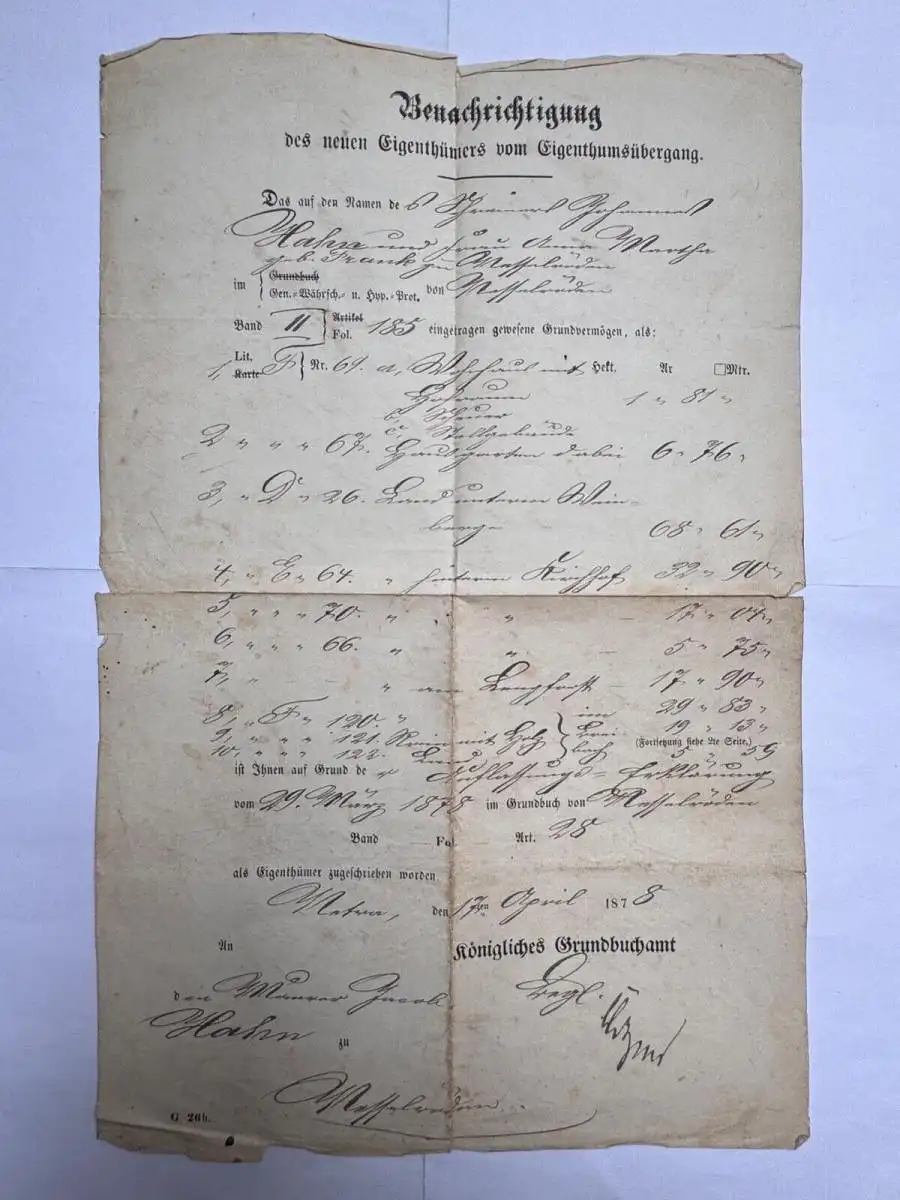 Benachrichtigung
des neuen Eigenthümers vom Eigenthumsübergang.
Das auf den Namen des Schreiners Johannes
Hahn und Frau Anna Martha
geb. Frank zu Nesselröden
im Grundbuch
Gen.-Währsch.- u. Hyp.-Prot. von Nesselröden
Band II Artikel Fol. 185 eingetragen gewesene Grundvermögen, als:
1, Lit. Karte F Nr. 69. a, Wohnhaus mit Hekt. Ar □Mtr.
Hofraum 1 " 81 "
b, Scheuer
c, Stallgebäude
2 " " " 67. Hausgarten dabei 6 " 76 "
3, " D " 26. Land unterm Wein-
berge 68 " 61 "
4, " E " 64. " hinterm Kirchhof 32 " 90 "
5, " " " 70. " " 17 " 04 "
6, " " " 66. " " 5 " 75 "
7, " - " am 17 " 90 "
8, " F " 120. " im 29 " 83 "
9, " " " 121. Rain mit Holz 19 " 13 "
(Fortsetzung siehe 2te Seite.)
10, " " " 122. Land bach 5 " 59
ist Ihnen auf Grund der Auflassungs-Erklärung
vom 29. März 1878 im Grundbuch von Nesselröden
Band — Fol. — Art. 28
als Eigenthümer zugeschrieben worden
Netra, den 17ten April 1878
An Königliches Grundbuchamt
den Maurer Jacob
Hahn zu
Nesselröden
G 26b.